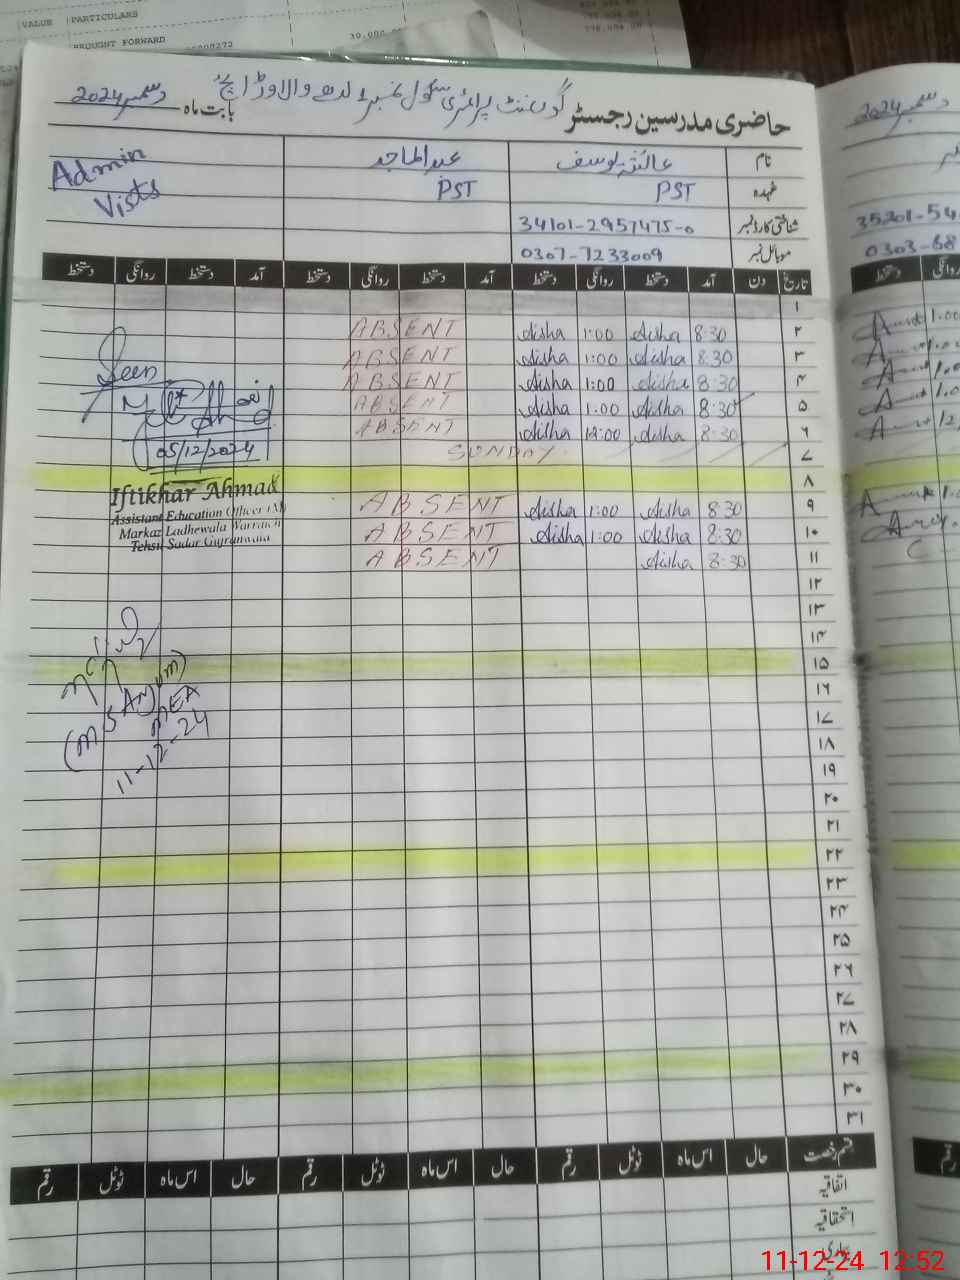 VALUE PARTICULARS
BROUGHT FORWARD
حاضری مدرسین رجسٹر گورنمنٹ پرائمری سکول نمبر 1 لدھے والا وڑائچ بابت ماہ دسمبر 2024
نام عائشہ یوسف عبدالماجد Admin
عہدہ PST PST Vists
شناختی کارڈ نمبر 34101-2957475-0
موبائل نمبر 0307-7233009
تاریخ دن آمد دستخط روانگی دستخط آمد دستخط روانگی دستخط آمد دستخط روانگی دستخط
۱
۲ 8:30 Aisha 1:00 Aisha ABSENT
۳ 8:30 Aisha 1:00 Aisha ABSENT
۴ 8:30 Aisha 1:00 Aisha ABSENT
۵ 8:30 Aisha 1:00 Aisha ABSENT
۶ 8:30 Aisha 12:00 Aisha ABSENT
۷ SUNDAY
۸
۹ 8:30 Aisha 1:00 Aisha ABSENT
۱۰ 8:30 Aisha 1:00 Aisha ABSENT
۱۱ 8:30 Aisha ABSENT
۱۲
۱۳
۱۴
۱۵
۱۶
۱۷
۱۸
۱۹
۲۰
۲۱
۲۲
۲۳
۲۴
۲۵
۲۶
۲۷
۲۸
۲۹
۳۰
۳۱
Seen
05/12/2024
Iftikhar Ahmad
Assistant Education Officer (M)
Markaz Ladhewala Warraich
Tehsil Sadar Gujranwala
(M SANJUM)
MEA
11-12-24
قسم رخصت حال اس ماہ ٹوٹل رقم حال اس ماہ ٹوٹل رقم حال اس ماہ ٹوٹل رقم
اتفاقیہ
استحقاقیہ
بیماری
دسمبر 2024
35201-54
0303-68
دستخط روانگی
1.00
رقم
11-12-24 12:52